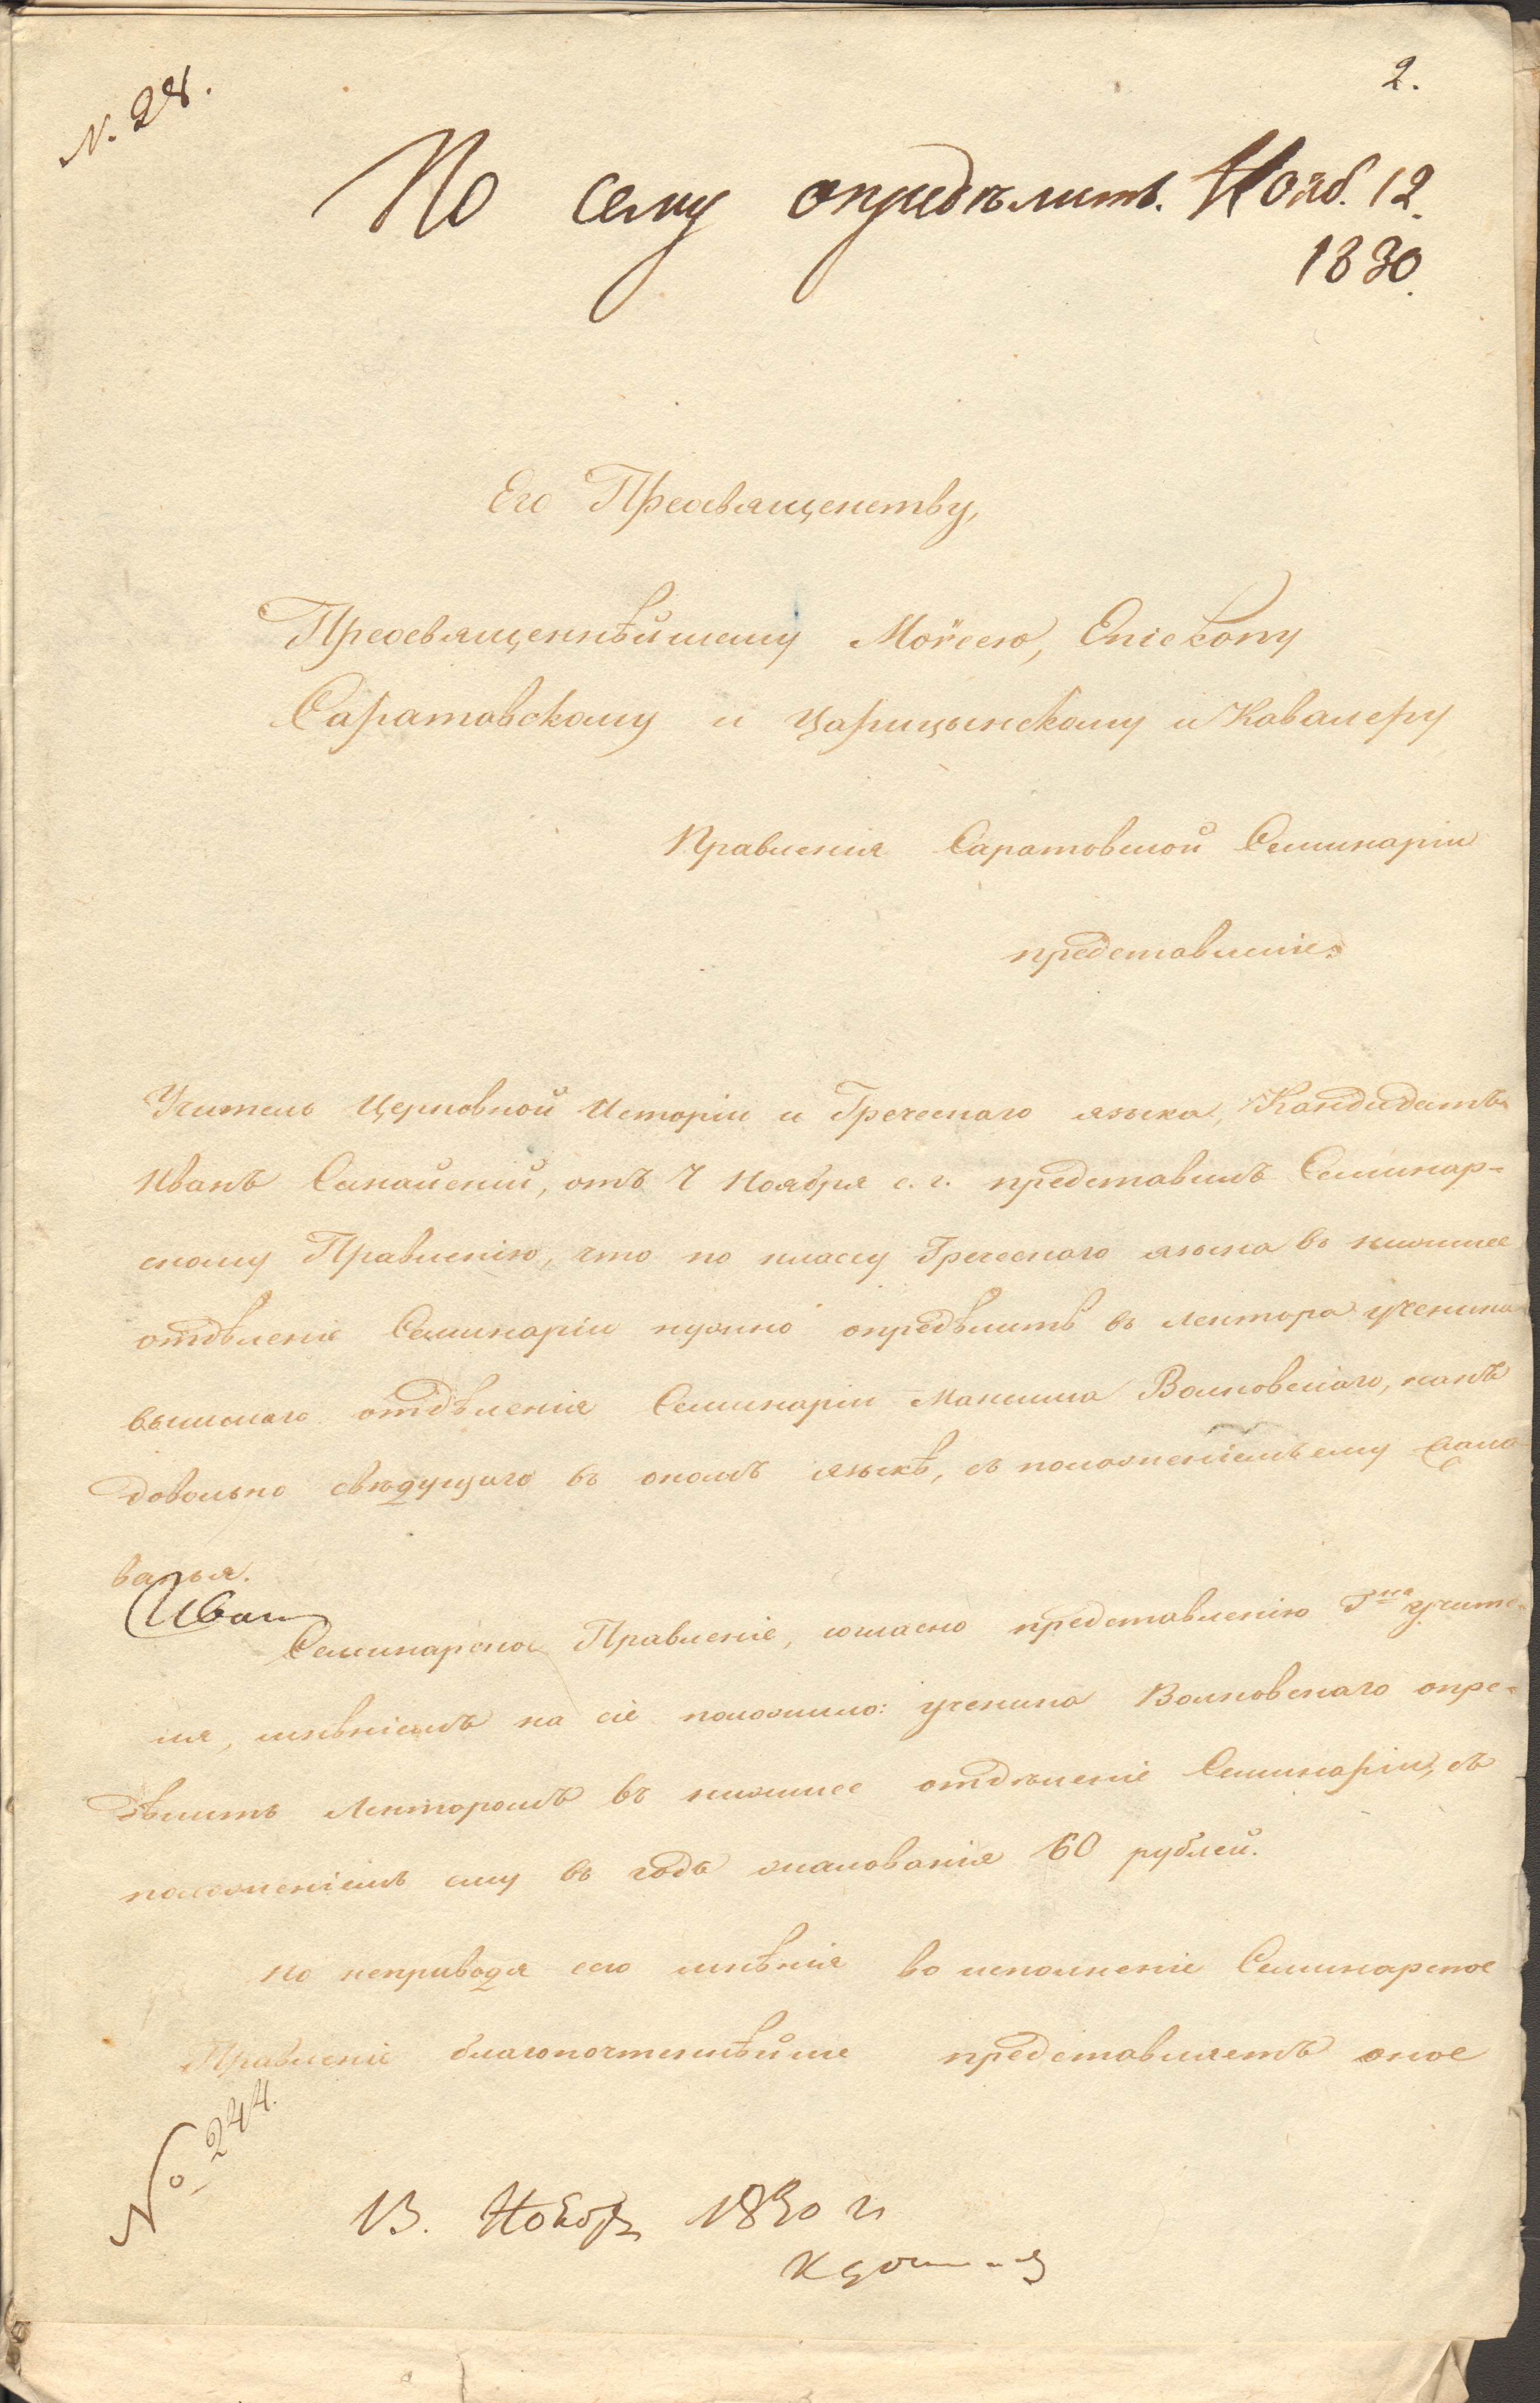 N. 28.
2.
По сему опредѣлить. Нояб. 12.
1830.
Его Преосвященству,
Преосвященнѣйшему Моѵсею, Епископу
Саратовскому и Царицынскому и Кавалеру
Правленія Саратовской Семинаріи
представленіе.
Учитель Церковной Исторіи и Греческаго языка, Кандидатъ
Иванъ Синайскій, отъ 7 Ноября с. г. представилъ Семинар-
скому Правленію, что по классу Греческаго языка въ низшее
отдѣленіе Семинаріи нужно опредѣлить въ лектора ученика
высшаго отдѣленія Семинаріи Максима Волковскаго, какъ
довольно свѣдущаго въ ономъ языкѣ, съ положеніемъ ему жало
ванья.
Иван
Семинарское Правленіе, согласно представленію Гна учите-
ля, мнѣніемъ на сіе положило: ученика Волковскаго опре-
дѣлить Лекторомъ въ низшее отдѣленіе Семинаріи, съ
положеніемъ ему въ годъ жалованія 60 рублей.
Но неприводя сего мнѣнія во исполненіе Семинарское
Правленіе благопочтеннѣйше представляетъ оное
№ 244.
13. Ноября 1830 г.